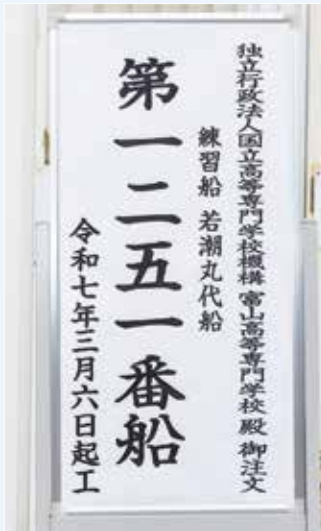 独立行政法人国立高等専門学校機構 富山高等専門学校 殿 御注文
練習船 若潮丸代船
第一二五一番船
令和七年三月六日起工